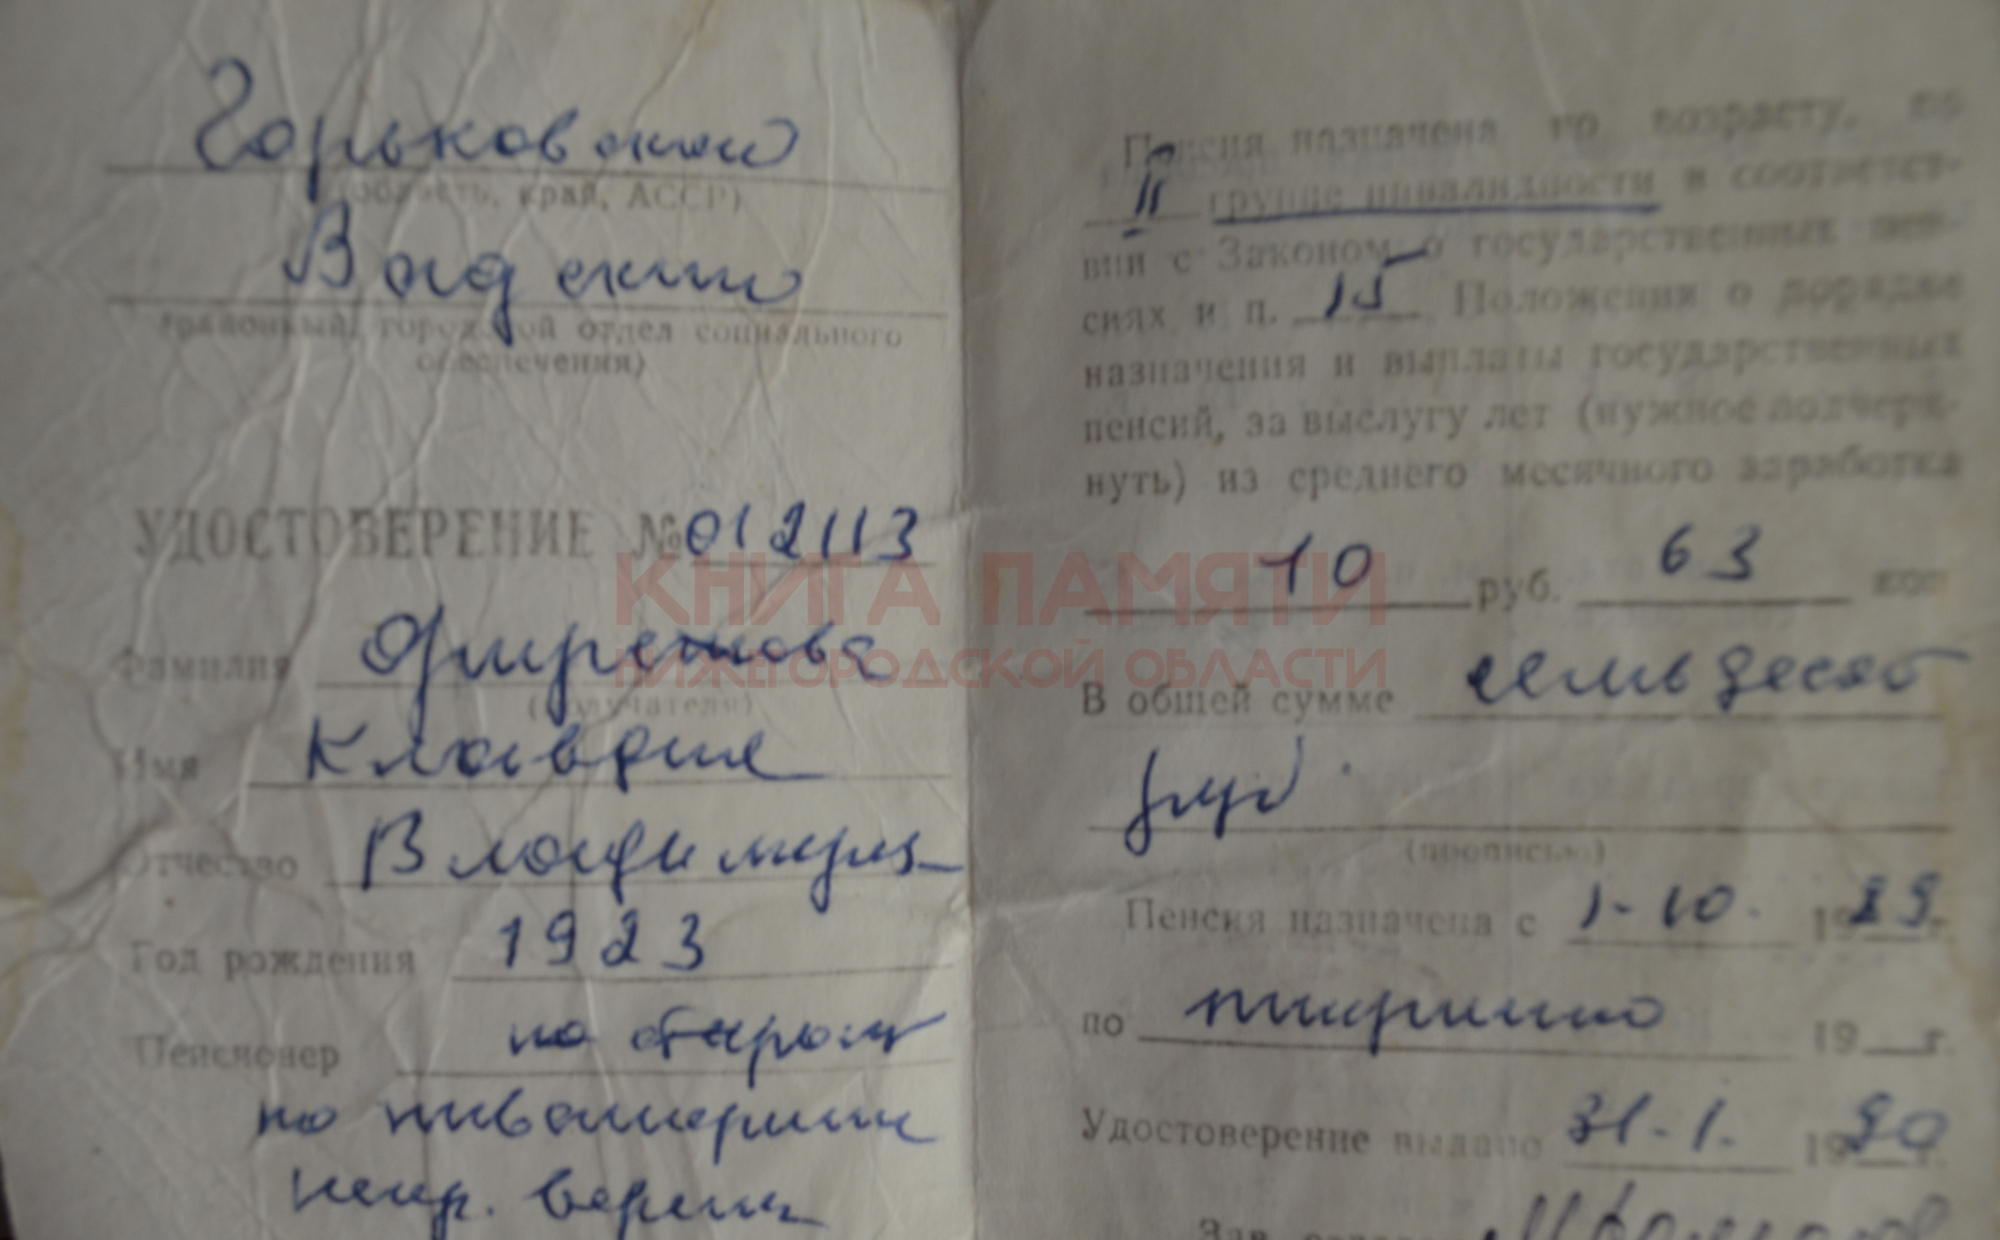 Горьковский
(область, край, АССР)
Вадский
(районный, городской отдел социального
обеспечения)
УДОСТОВЕРЕНИЕ № 012113
Фамилия
(получателя)
Имя Клавдия
Отчество Владимир
Год рождения 1923
Пенсионер по старости
по
Пенсия назначена по возрасту, по
II группе инвалидности в соответст-
вии с Законом о государственных пен-
сиях и п. 15 Положения о порядке
назначения и выплаты государственных
пенсий, за выслугу лет (нужное подчерк-
нуть) из среднего месячного заработка
10 руб. 63 коп
В общей сумме семьдесят
руб.
(прописью)
Пенсия назначена с 1-10. 19
по 19 г.
Удостоверение выдано 31-1. 1990 г.
Зав.
КНИГА ПАМЯТИ
НИЖЕГОРОДСКОЙ ОБЛАСТИ